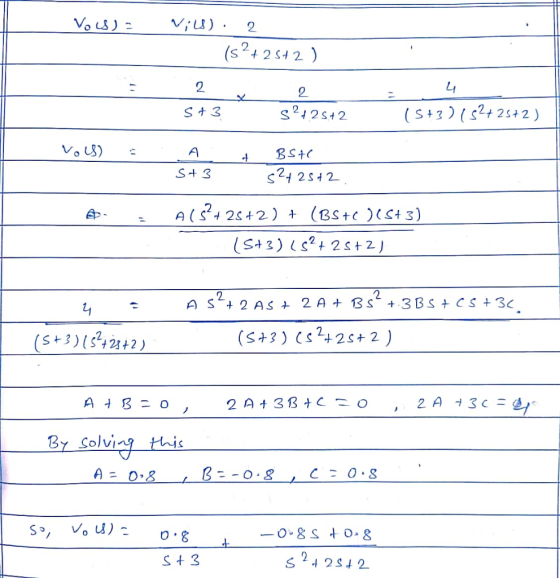 Vo(s) = Vi(s) . 2 / (s²+2s+2)
= 2 / (s+3) × 2 / (s²+2s+2) = 4 / (s+3)(s²+2s+2)
Vo(s) = A / (s+3) + (Bs+c) / (s²+2s+2)
= A(s²+2s+2) + (Bs+c)(s+3) / (s+3)(s²+2s+2)
4 / (s+3)(s²+2s+2) = As²+2As+2A+Bs²+3Bs+Cs+3c. / (s+3)(s²+2s+2)
A+B=0, 2A+3B+C=0, 2A+3C=4
By solving this
A=0.8, B=-0.8, C=0.8
So, Vo(s) = 0.8 / (s+3) + (-0.8s+0.8) / (s²+2s+2)